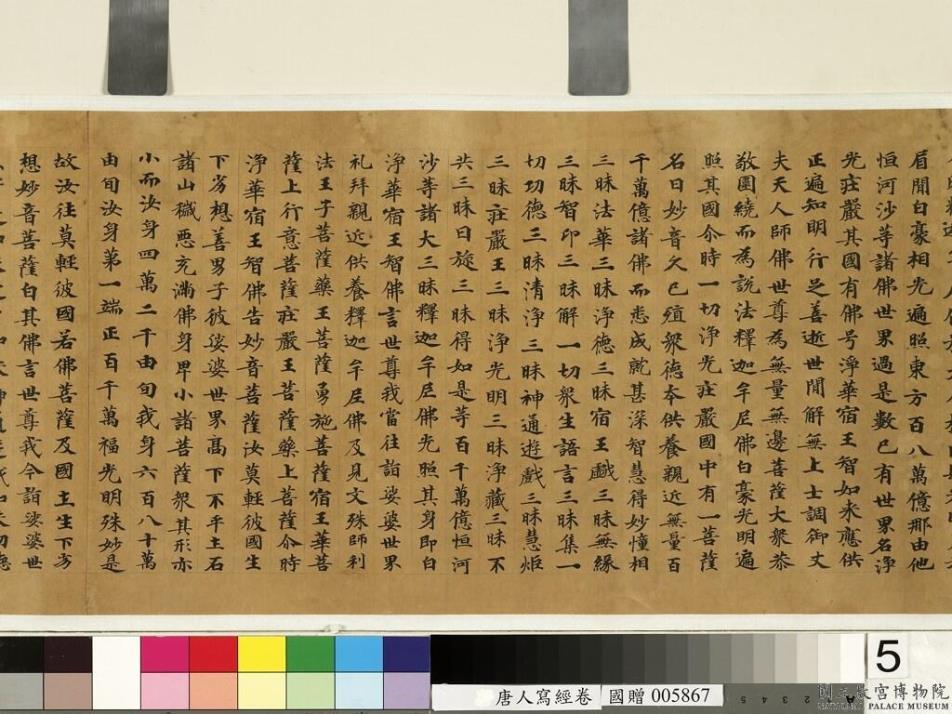 眉間白豪相光遍照東方百八萬億那由他
恒河沙等諸佛世界過是數已有世界名淨
光莊嚴其國有佛号淨華宿王智如來應供
正遍知明行之善逝世間解無上士調御丈
夫天人師佛世尊為無量無邊菩薩大衆恭
敬圍繞而為說法釋迦牟尼佛白豪光明遍
照其國尒時一切淨光莊嚴國中有一菩薩
名曰妙音久已殖衆德本供養親近無量百
千萬億諸佛而悉成就甚深智慧得妙憧相
三昧法華三昧淨德三昧宿王戲三昧無緣
三昧智印三昧解一切衆生語言三昧集一
切功德三昧清淨三昧神通遊戲三昧慧炬
三昧莊嚴王三昧淨光明三昧淨藏三昧不
共三昧日旋三昧得如是等百千萬億恒河
沙等諸大三昧釋迦牟尼佛光照其身即白
淨華宿王智佛言世尊我當往詣娑婆世界
礼拜親近供養釋迦牟尼佛及見文殊師利
法王子菩薩藥王菩薩勇施菩薩宿王華菩
薩上行意菩薩莊嚴王菩薩藥上菩薩尒時
淨華宿王智佛告妙音菩薩汝莫輕彼國生
下劣想善男子彼娑婆世界高下不平土石
諸山穢惡充滿佛身卑小諸菩薩衆其形亦
小而汝身四萬二千由旬我身六百八十萬
由旬汝身第一端正百千萬福光明殊妙是
故汝往莫輕彼國若佛菩薩及國土生下劣
想妙音菩薩白其佛言世尊我今詣娑婆世
5
唐人寫經卷 國贈 005867
國立故宮博物院
NATIONAL PALACE MUSEUM